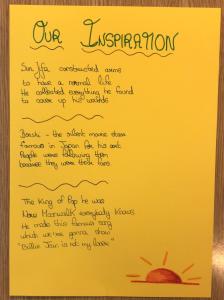 OUR INSPIRATION
Sun Jifa constructed arms
to have a normal life
He collected everything he found
to cover up his
- the silent movie stars
famous in Japan for his art
People were following them
because they were their fans
The King of Pop he was
Now Moonwalk everybody knows
He made this famous song
which we're gonna show
"Billie Jean is not my lover"